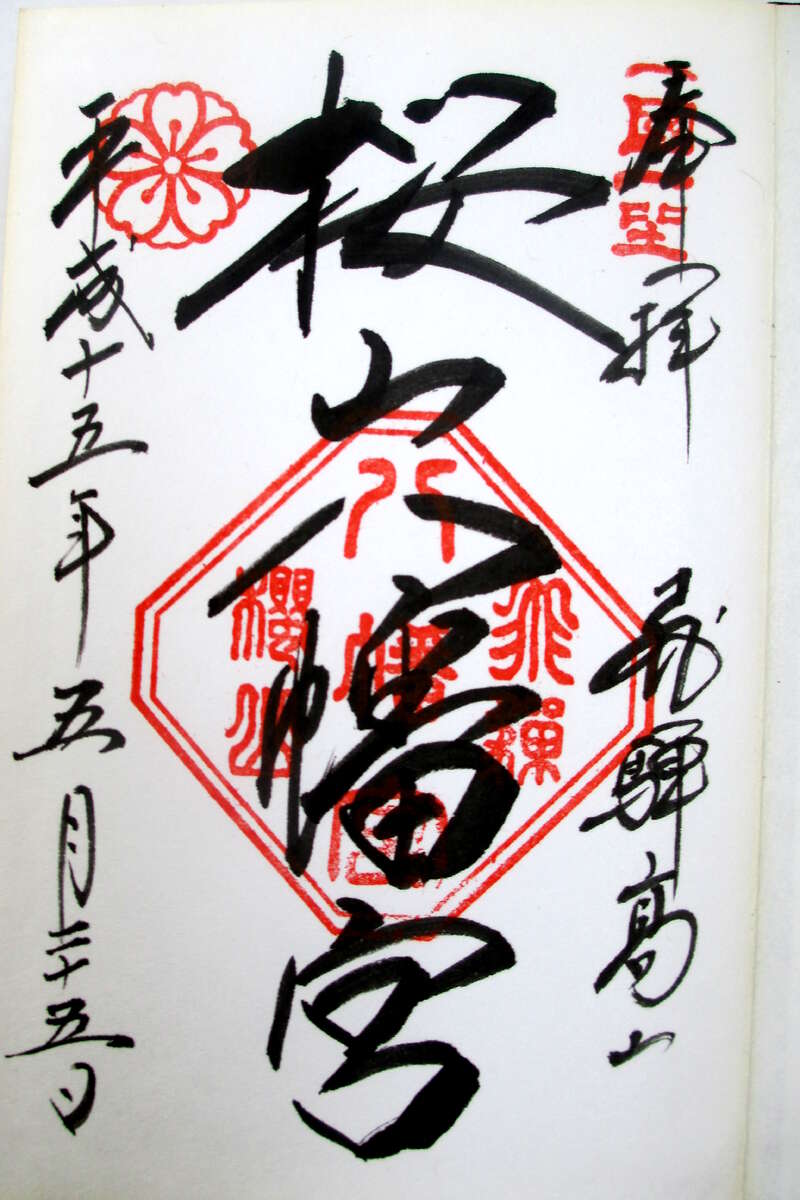 奉拝
飛騨高山
桜山八幡宮
平成十五年五月二十五日
飛騨
八幡宮
櫻山